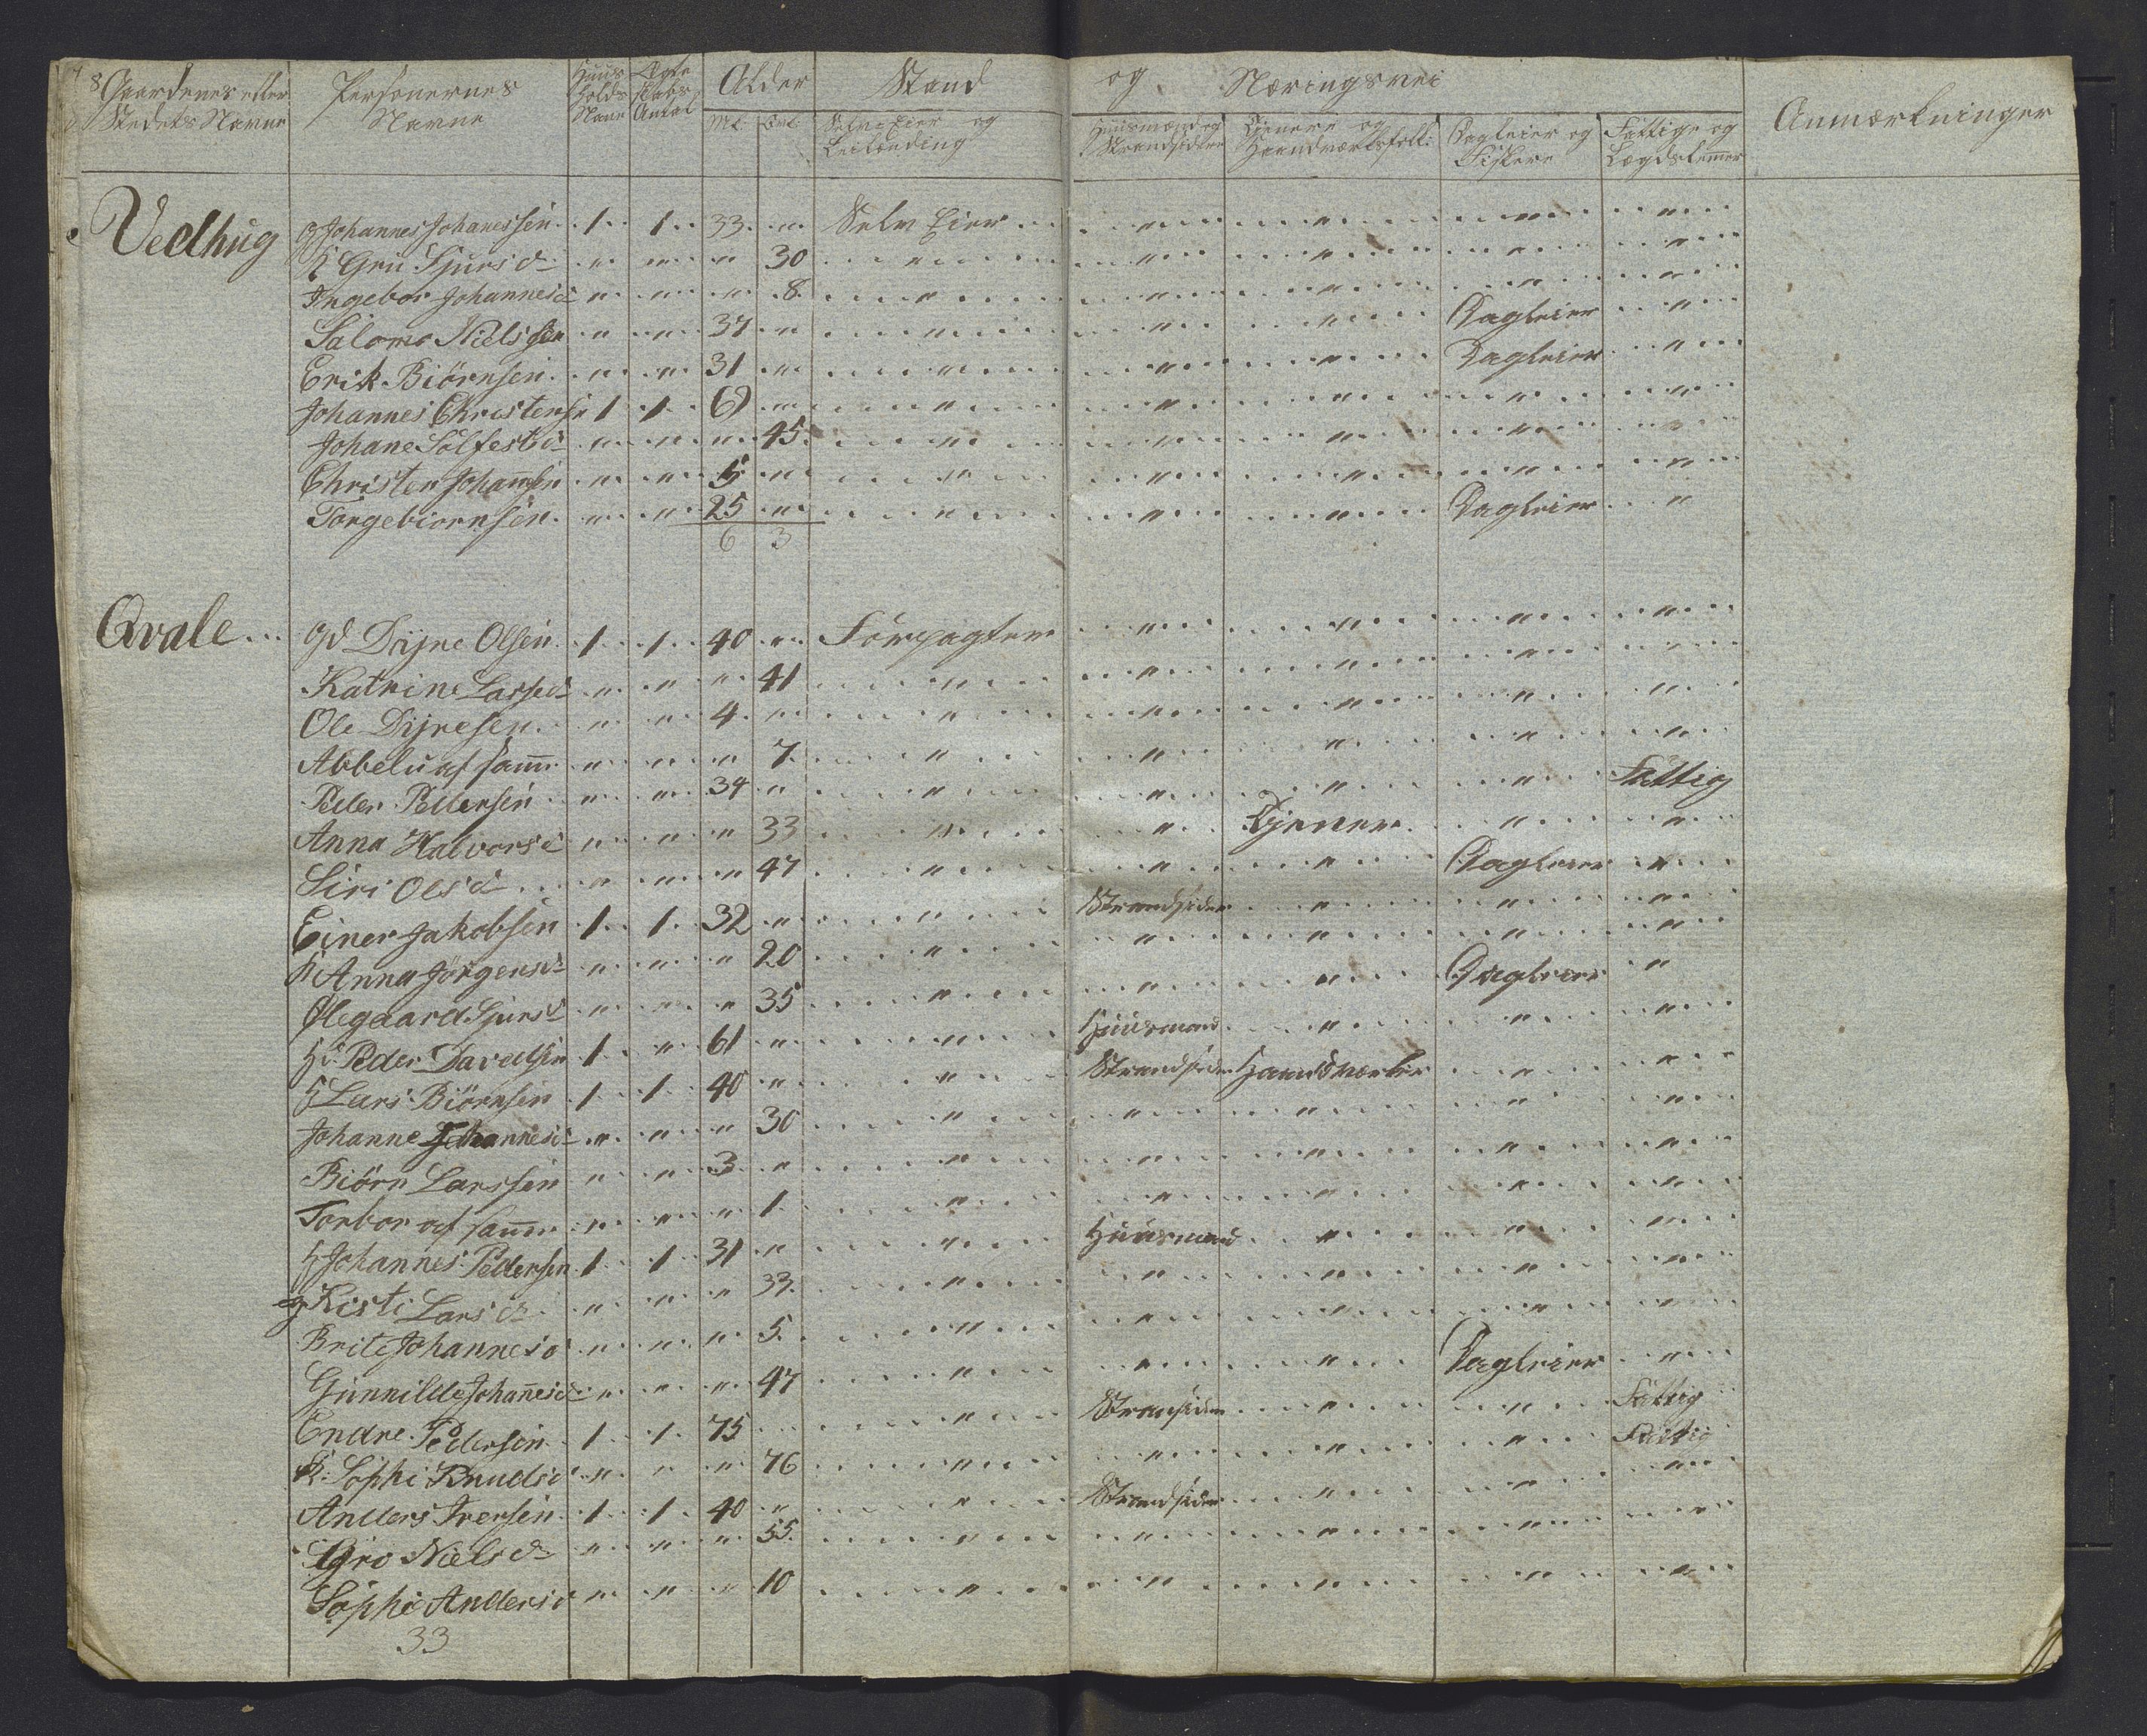 8 Gaardenes eller Stedets Navne | Personernes Navne | Huus holds Navne | Ægte skabs Antal | Alder | Stand og Næringsvei | Anmærkninger
Mk: | Qvk: | Selv Eier og Leilænding | Huusmænd og Strandsiddere | Tjenere og Haandværksfolk | Dagleier og Fiskere | Fattige og Lægdslemmer
Vedhüg | G Johannes Johanessen | 1 | 1 | 33 | " | Selv Eier | " | " | " | "
K Gru Sjurs d | " | " | " | 30 | " | " | " | " | "
Ingebor Johannes d | " | " | " | 8 | " | " | " | " | "
Salomo Nielssen | " | " | 37 | " | " | " | " | Dagleier | "
Erik Biörnsen | " | " | 31 | " | " | " | " | Dagleier | "
Johannes Christensn | 1 | 1 | 69 | " | " | " | " | " | "
Johane Sölfest d | " | " | " | 45 | " | " | " | " | "
Christen Johannsen | " | " | 5 | " | " | " | " | " | "
Torgebiornsen | " | " | 25 | " | " | " | " | Dagleier | "
6 | 3
Qvale | Gd Dyre Olsen | 1 | 1 | 40 | " | Forpagter | " | " | " | "
Katrine Larsed | " | " | " | 41 | " | " | " | " | "
Ole Dyresen | " | " | 4 | " | " | " | " | " | "
Abbelu af samm | " | " | " | 7 | " | " | " | " | "
Peder Pedersen | " | " | 34 | " | " | " | " | " | Fattig
Anna Halvors d | " | " | " | 33 | " | " | Tjener | " | "
Siri Ols d | " | " | " | 47 | " | " | " | Dagleier | "
Einer Jakobsen | 1 | 1 | 32 | " | " | Strandsider | " | " | "
K Anna Jörgens d | " | " | " | 20 | " | " | " | " | "
Ølegaard Sjurs d | " | " | " | 35 | " | " | " | Dagleier | "
Hd Peder Davedsen | 1 | " | 61 | " | " | Huusmand | " | " | "
H Lars Biörnsen | 1 | 1 | 40 | " | " | Strandsider | Haandværker | " | "
Johanne Johannes d | " | " | " | 30 | " | " | " | " | "
Biörn Larssen | " | " | 3 | " | " | " | " | " | "
Torbor af samm | " | " | " | 1 | " | " | " | " | "
H Johannes Pedersen | 1 | 1 | 31 | " | " | Huusmand | " | " | "
Kisti Lars d | " | " | " | 33 | " | " | " | " | "
Brite Johannes d | " | " | " | 5 | " | " | " | " | "
Gunnilde Johanes d | " | " | " | 47 | " | " | " | Dagleier | "
Endre Pedersen | 1 | 1 | 75 | " | Stransider | " | " | Fattig
K: Sophi Knuds d | " | " | " | 76 | " | " | " | " | Fattig
Anders Iversen | 1 | 1 | 40 | " | " | Strandsider | " | " | "
Gro Niels d | " | " | " | 55 | " | " | " | " | "
Sophi Anders d | " | " | " | 10 | " | " | " | " | "
33